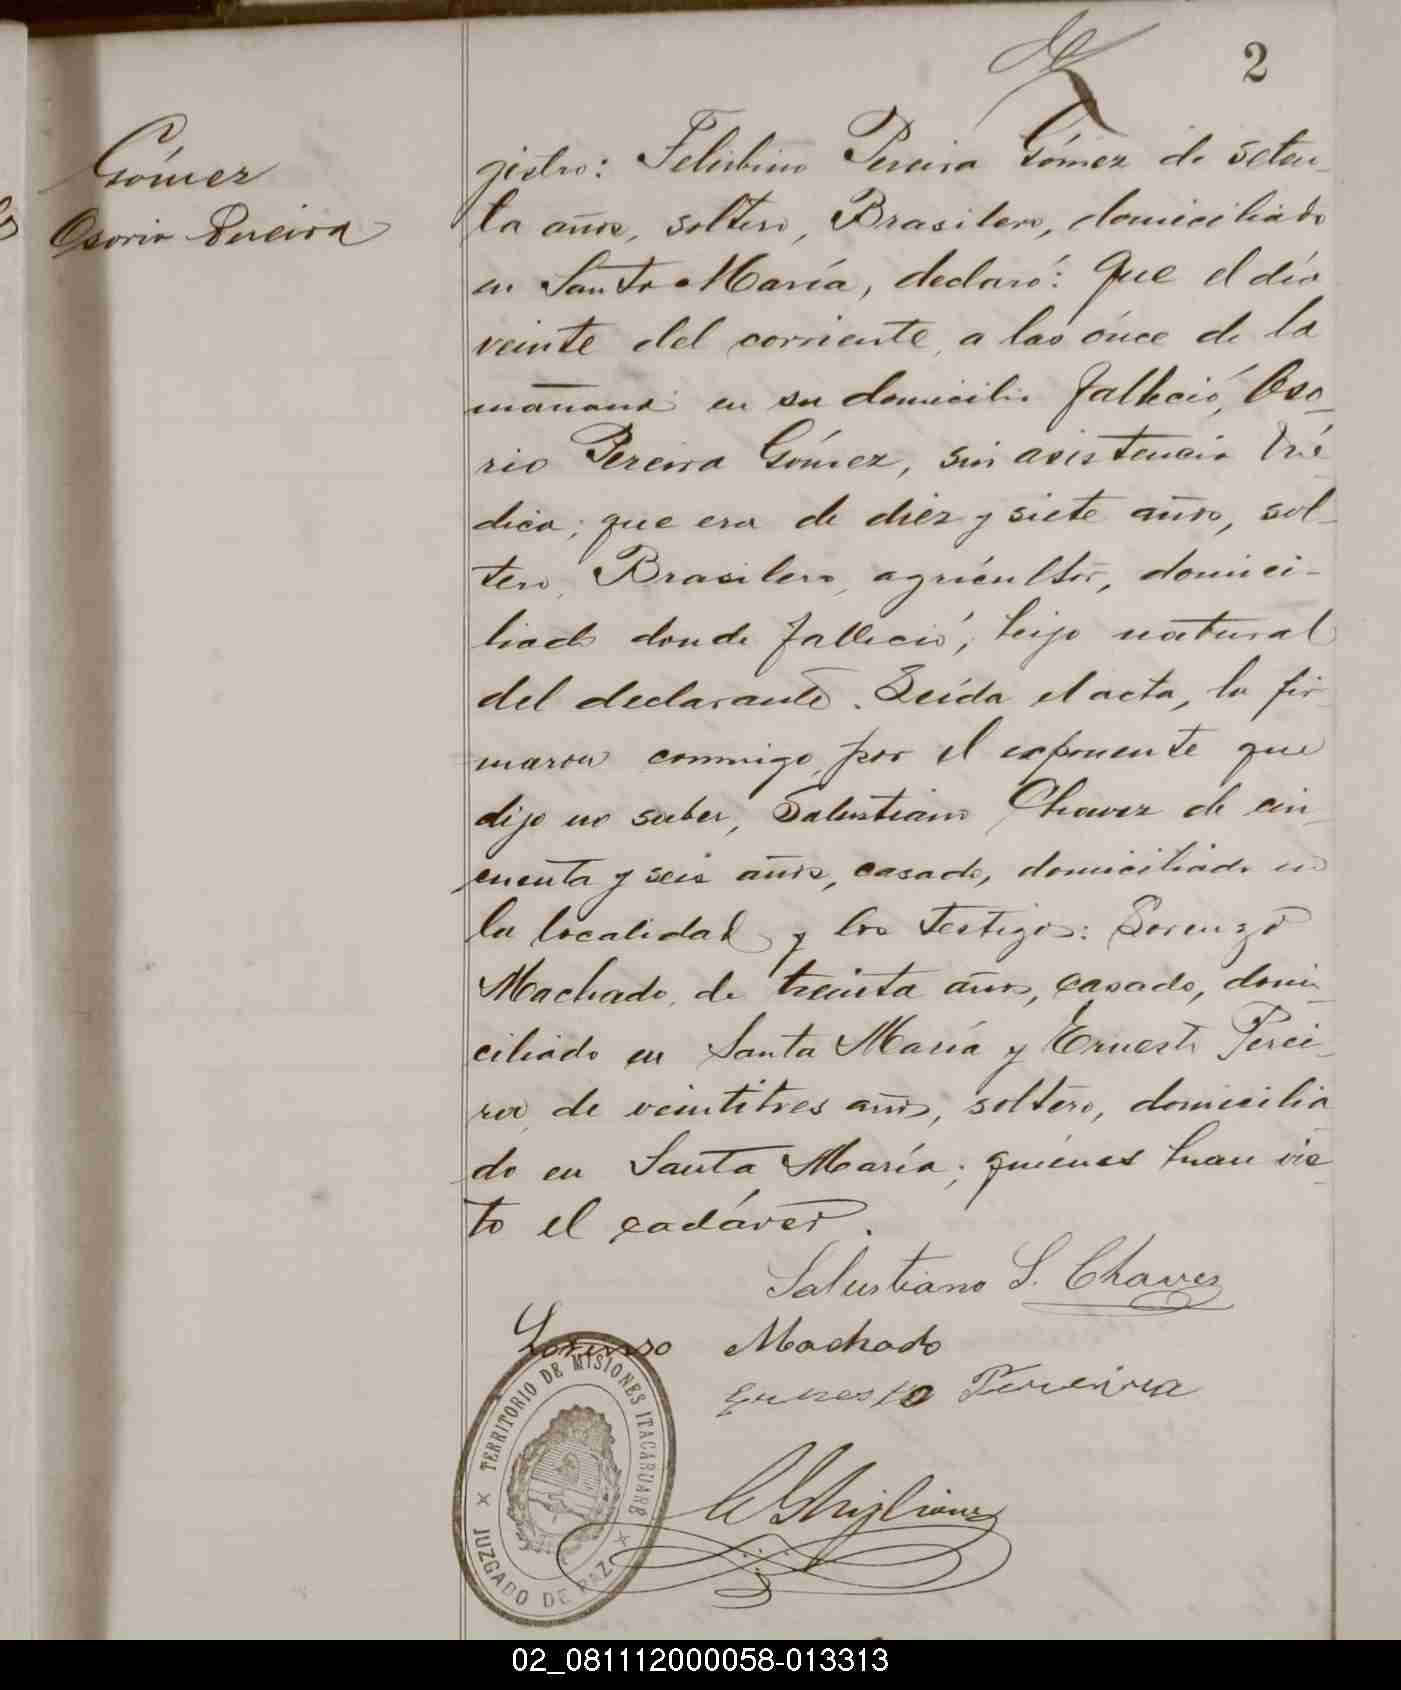 2
Gómez
Osorio Pereira
gistro: Felisbino Pereira Gómez de seten-
ta años, soltero, Brasilero, domiciliado
en Santa María, declaró: Que el día
veinte del corriente, a las once de la
mañana en su domicilio falleció, Oso-
rio Pereira Gómez, sin asistencia mé-
dica; que era de diez y siete años, sol-
tero, Brasilero, agricultor, domici-
liado donde falleció; hijo natural
del declarante. Leída el acta, la fir-
maron conmigo, por el exponente que
dijo no saber, Salustiano Chavez de cin-
cuenta y seis años, casado, domiciliado en
la localidad y los testigos: Lorenzo
Machado, de treinta años, casado, domi-
ciliado en Santa María y Ernesto Perei-
ra, de veintitres años, soltero, domicilia
do en Santa María; quiénes han vis-
to el cadáver.
Salustiano S. Chaves
Lorenso Machado
Ernesto Pereira
TERRITORIO DE MISIONES ITACARUARE
JUZGADO DE PAZ
02_081112000058-013313